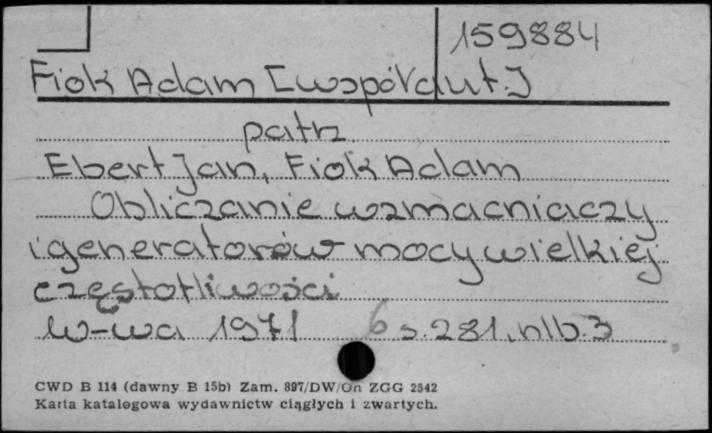 159884
Fiok Adam [współaut.]
patrz
Ebert Jan, Fiok Adam
Obliczanie wzmacniaczy
i generatorów mocy wielkiej
częstotliwości
W-wa 1971 6 s. 281, nlb. 3
CWD B 114 (dawny B 15b) Zam. 897/DW/On ZGG 2542
Karta katalogowa wydawnictw ciągłych i zwartych.